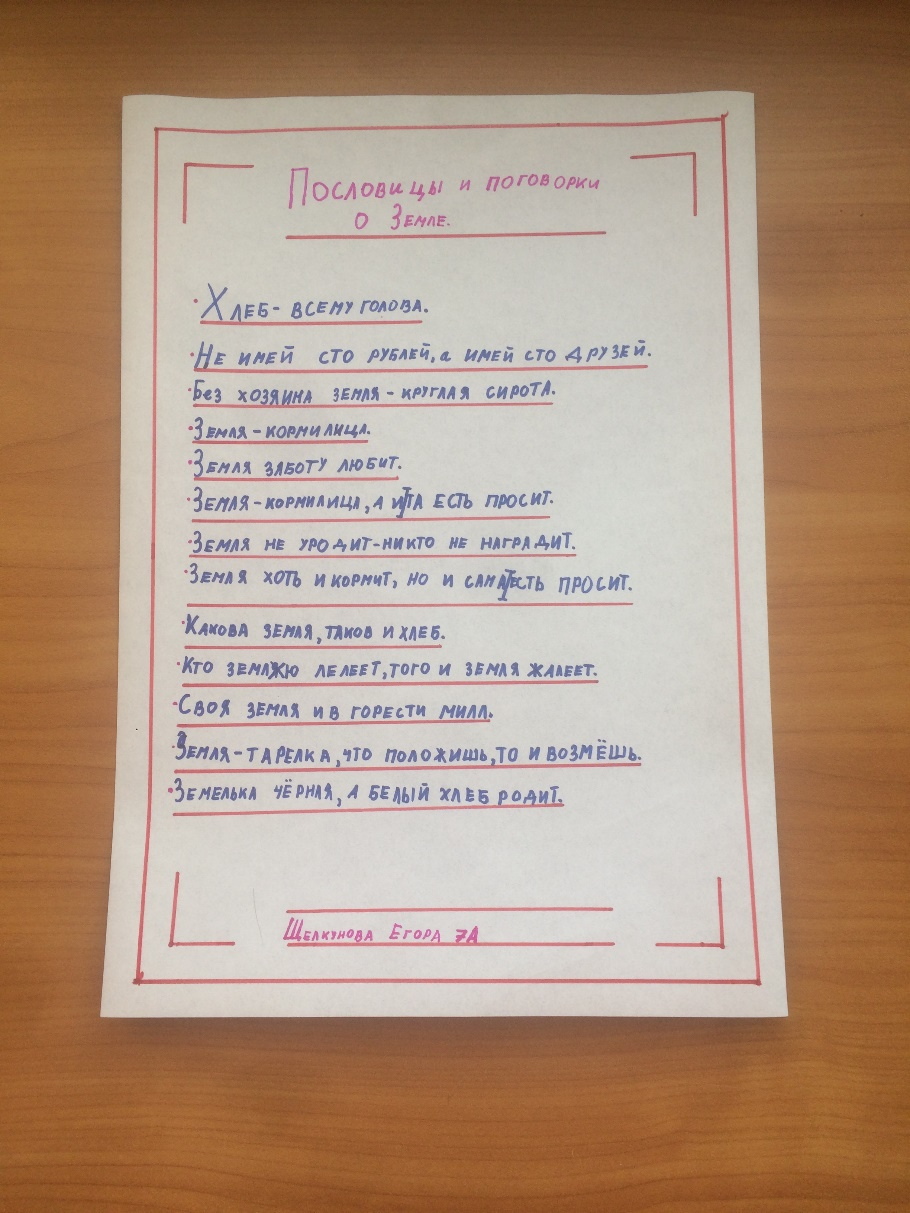 Пословицы и поговорки
о Земле.
• Хлеб - всему голова.
• Не имей сто рублей, а имей сто друзей.
• Без хозяина земля - круглая сирота.
• Земля - кормилица.
• Земля заботу любит.
• Земля - кормилица, а и та есть просит.
• Земля не уродит - никто не наградит.
• Земля хоть и кормит, но и сама есть просит.
• Какова земля, таков и хлеб.
• Кто землю лелеет, того и земля жалеет.
• Своя земля и в горести мила.
• Земля - тарелка, что положишь, то и возмёшь.
• Земелька чёрная, а белый хлеб родит.
Щелкунова Егора 7А